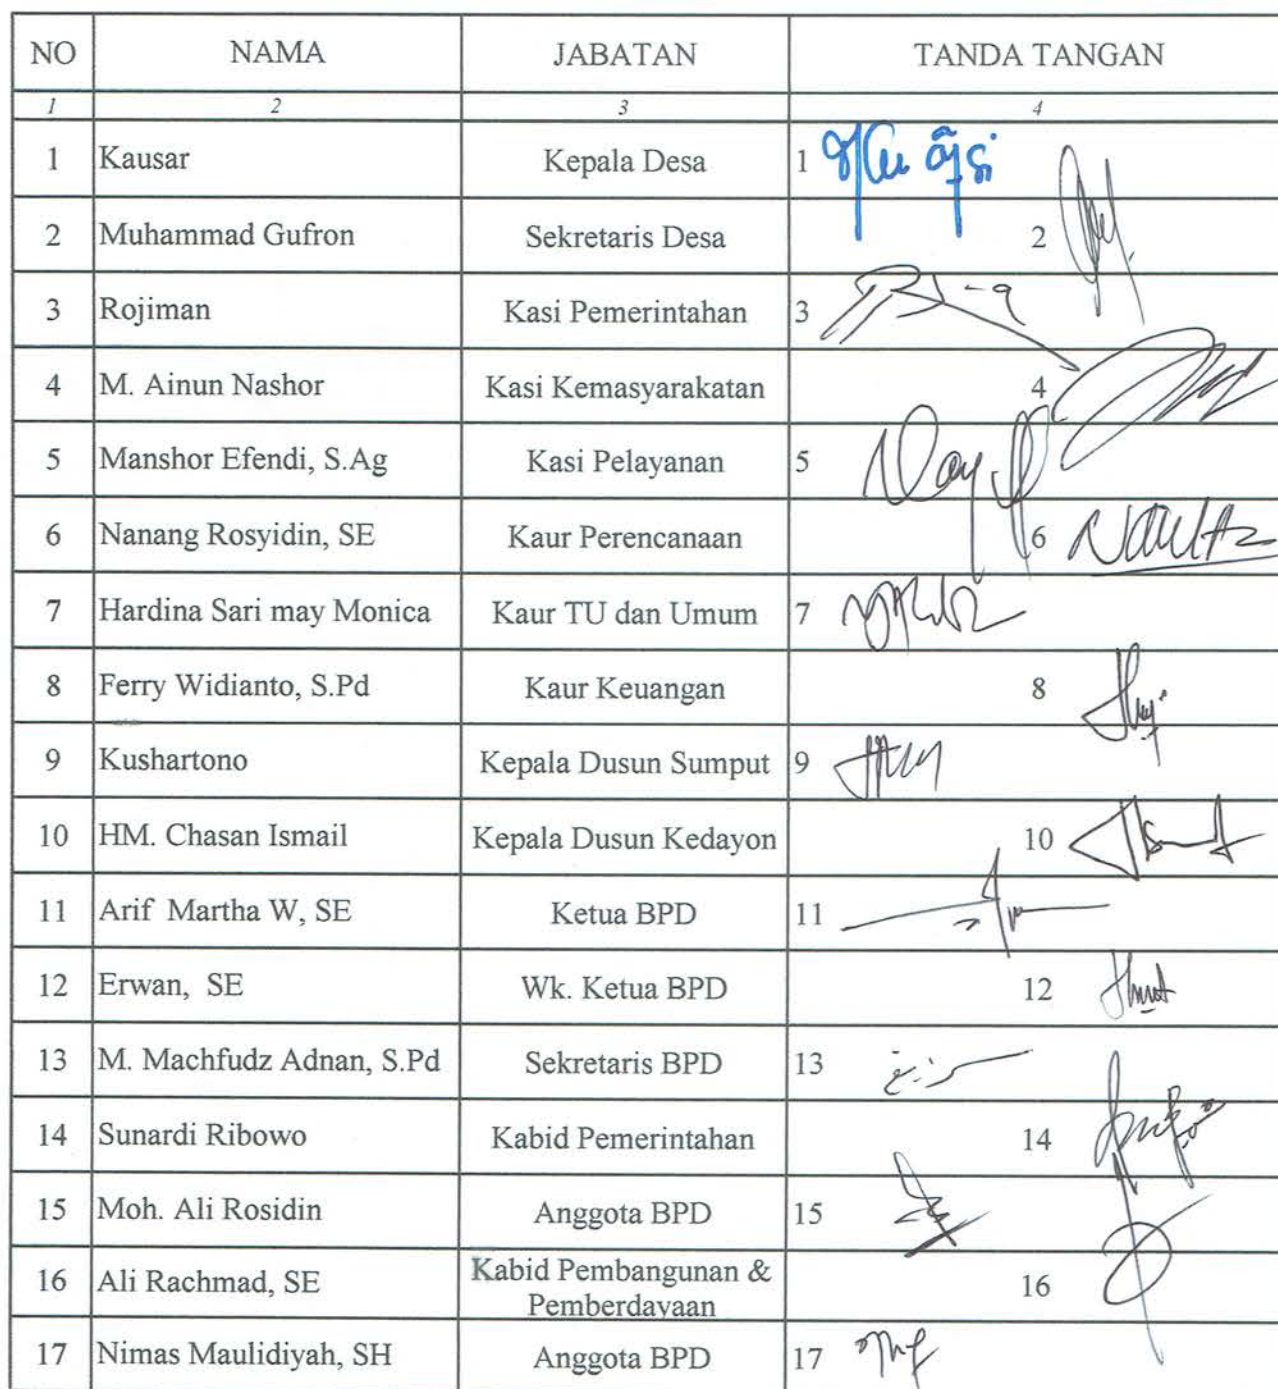 NO NAMA JABATAN TANDA TANGAN
1 2 3 4
1 Kausar Kepala Desa 1
2 Muhammad Gufron Sekretaris Desa 2
3 Rojiman Kasi Pemerintahan 3
4 M. Ainun Nashor Kasi Kemasyarakatan 4
5 Manshor Efendi, S.Ag Kasi Pelayanan 5
6 Nanang Rosyidin, SE Kaur Perencanaan 6
7 Hardina Sari may Monica Kaur TU dan Umum 7
8 Ferry Widianto, S.Pd Kaur Keuangan 8
9 Kushartono Kepala Dusun Sumput 9
10 HM. Chasan Ismail Kepala Dusun Kedayon 10
11 Arif Martha W, SE Ketua BPD 11
12 Erwan, SE Wk. Ketua BPD 12
13 M. Machfudz Adnan, S.Pd Sekretaris BPD 13
14 Sunardi Ribowo Kabid Pemerintahan 14
15 Moh. Ali Rosidin Anggota BPD 15
16 Ali Rachmad, SE Kabid Pembangunan & 16
Pemberdayaan
17 Nimas Maulidiyah, SH Anggota BPD 17